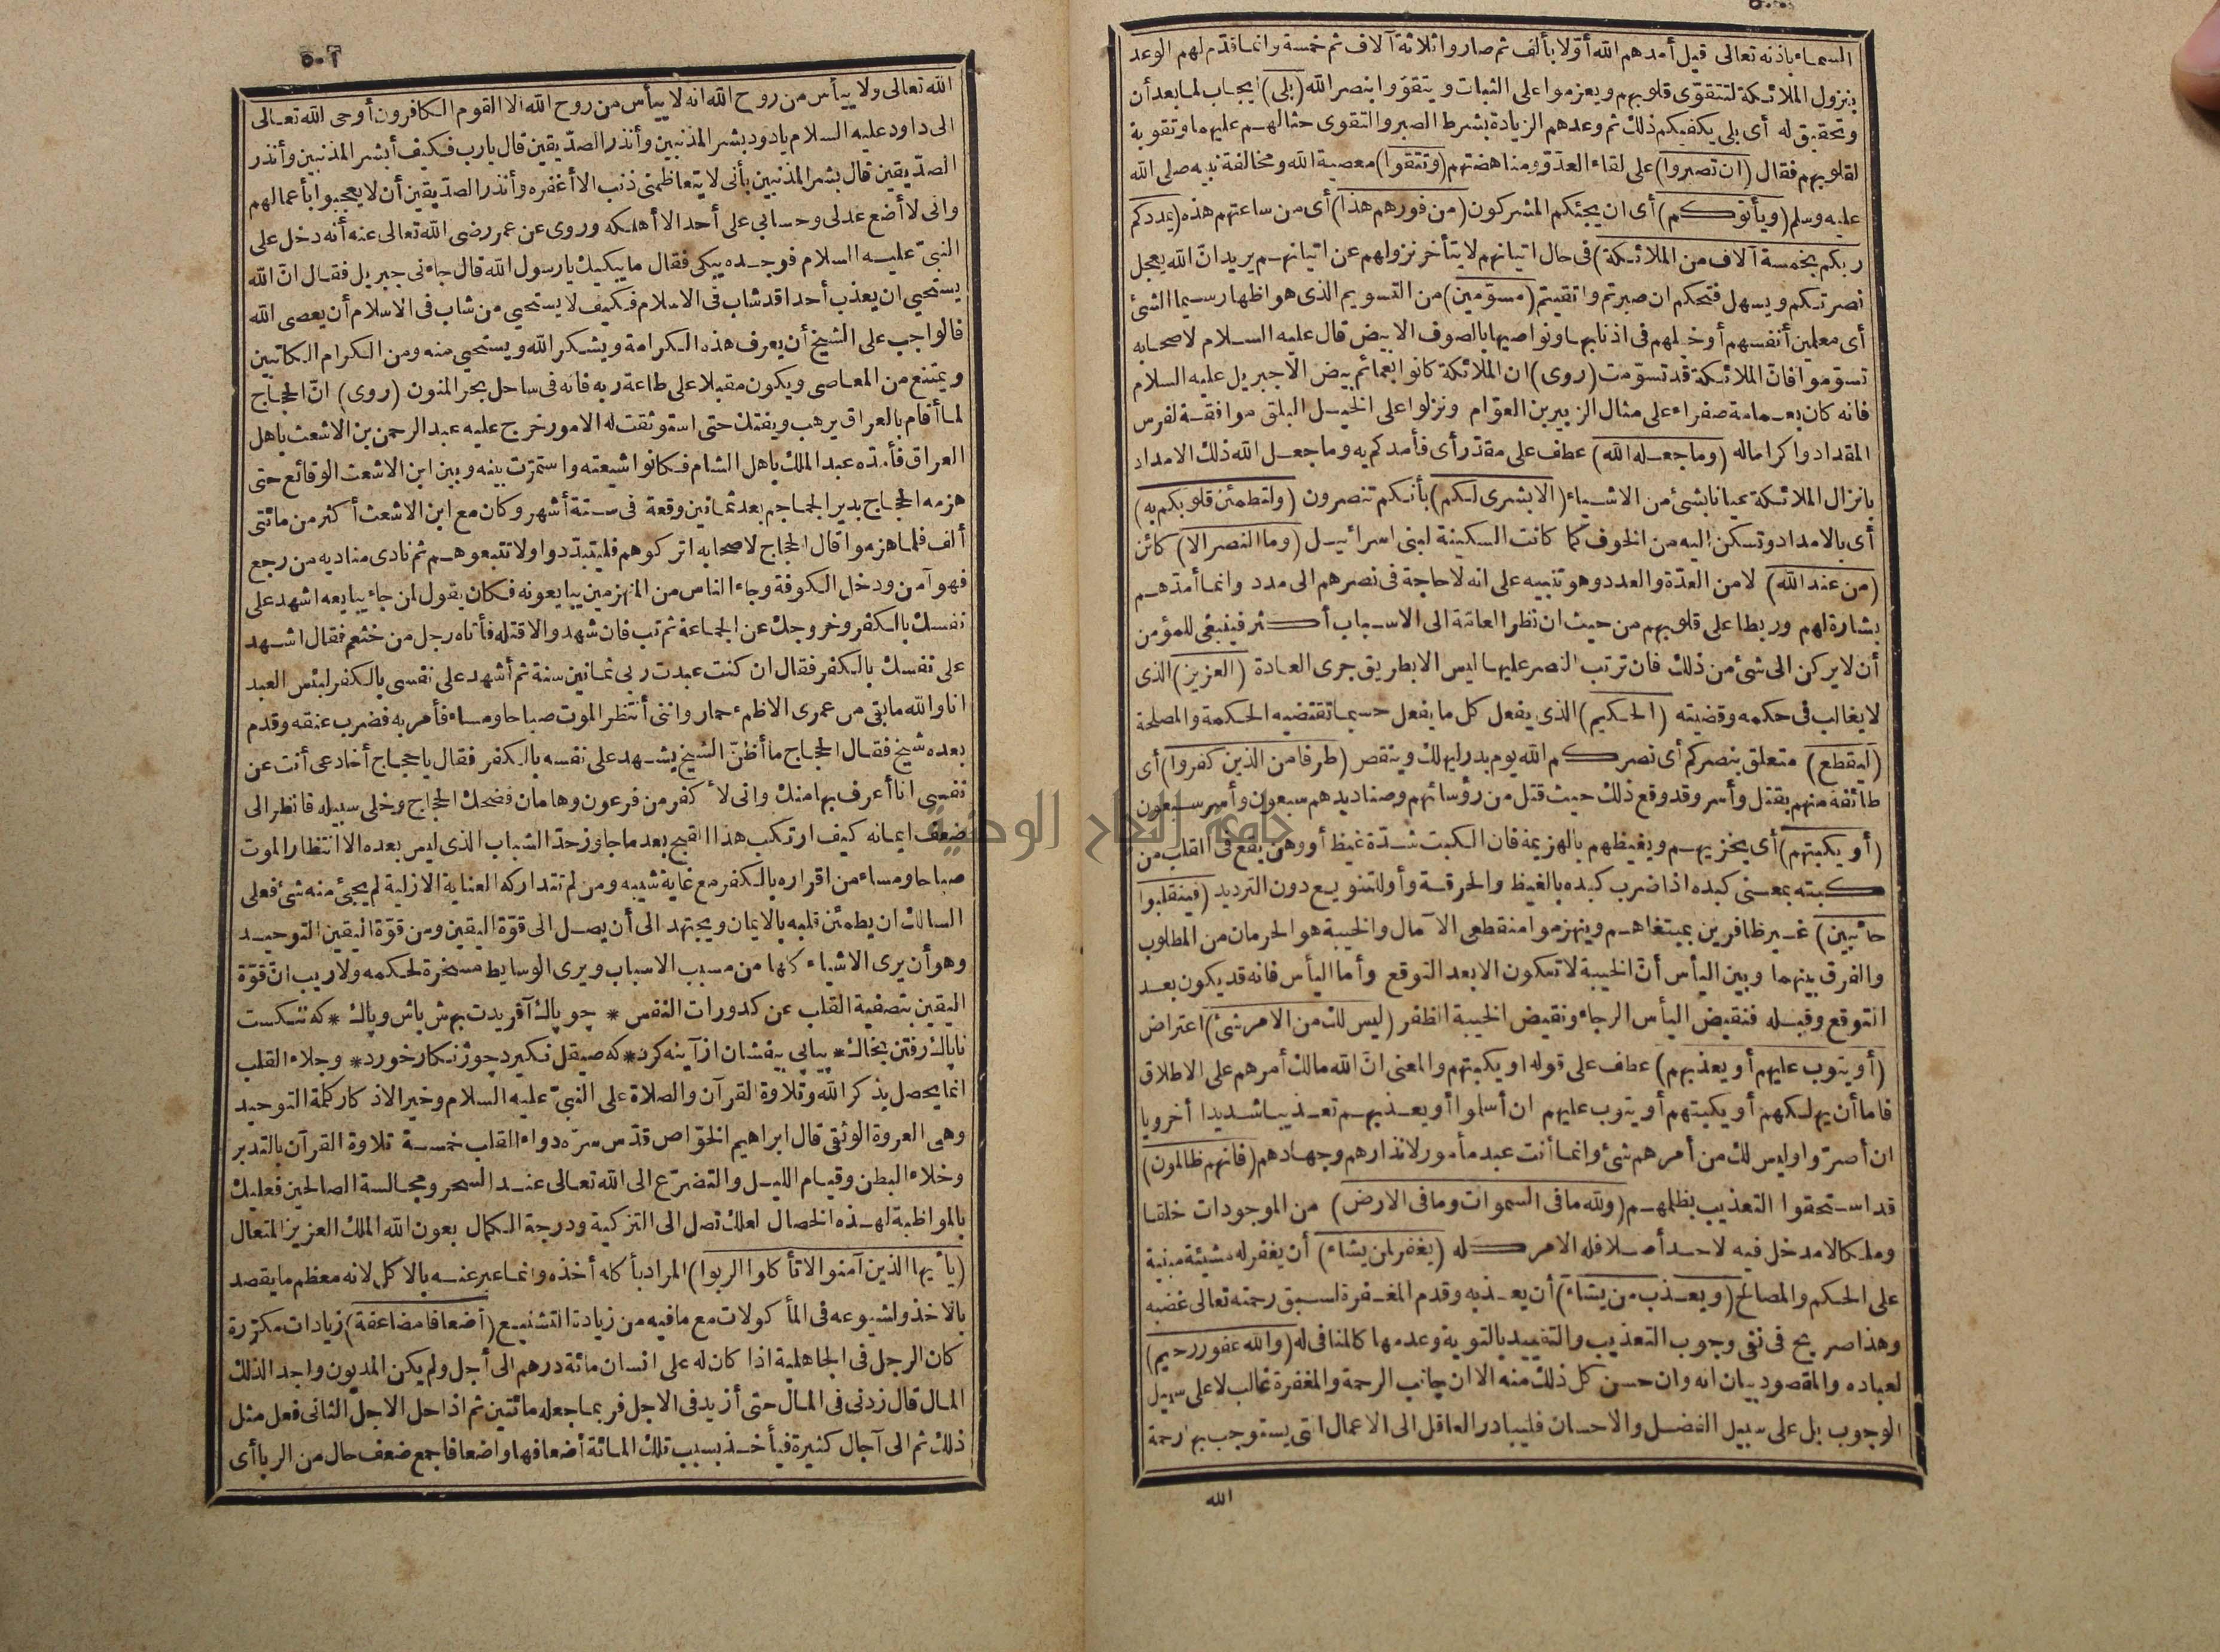 السماء باذنه تعالى قيل أمدهم الله أولا بألف ثم صاروا ثلاثة آلاف ثم خمسة وانما قدّم لهم الوعد
بنزول الملائكة لتتقوّى قلوبهم ويعزموا على الثبات ويتقوّوا بنصر الله (بلى) ايجاب لما بعد أن
وتحقيق له أى بلى يكفيكم ذلك ثم وعدهم الزيادة بشرط الصبر والتقوى حثا لهم عليهما وتقوية
لقلوبهم فقال (ان تصبروا) على لقاء العدوّ ومناهضتهم (وتتقوا) معصية الله ومخالفة نبيه صلى الله
عليه وسلم (ويأتوكم) أى ان يجئكم المشركون (من فورهم هذا) أى من ساعتهم هذه (يمددكم
ربكم بخمسة آلاف من الملائكة) فى حال اتيانهم لا يتأخر نزولهم عن اتيانهم يريد انّ الله يعجل
نصرتكم ويسهل فتحكم ان صبرتم واتقيتم (مسوّمين) من التسويم الذى هو اظهار سيما الشئ
أى معلمين أنفسهم أو خيلهم فى اذنابها ونواصيها بالصوف الابيض قال عليه السلام لاصحابه
تسوّموا فانّ الملائكة قد تسوّمت (روى) ان الملائكة كانوا بعمائم بيض الا جبريل عليه السلام
فانه كان بعمامة صفراء على مثال الزبير بن العوّام ونزلوا على الخيل البلق موافقة لفرس
المقداد واكراما له (وما جعله الله) عطف على مقدّر أى فأمدكم به وما جعل الله ذلك الامداد
بانزال الملائكة عيانا بشئ من الاشياء (الا بشرى لكم) بأنكم تنصرون (ولتطمئن قلوبكم به)
أى بالامداد وتسكن اليه من الخوف كما كانت السكينة لبنى اسرائيل (وما النصر الا) كائن
(من عند الله) لا من العدّة والعدد وهو تنبيه على انه لا حاجة فى نصرهم الى مدد وانما أمدّهم
بشارة لهم وربطا على قلوبهم من حيث ان نظر العامّة الى الاسباب أكثر فينبغى للمؤمن
أن لا يركن الى شئ من ذلك فان ترتب النصر عليها ليس الا بطريق جرى العادة (العزيز) الذى
لا يغالب فى حكمه وقضيته (الحكيم) الذى يفعل كل ما يفعل حسبما تقتضيه الحكمة والمصلحة
(ليقطع) متعلق بنصركم أى نصركم الله يوم بدر ليهلك وينقص (طرفا من الذين كفروا) أى
طائفة منهم بقتل وأسر وقد وقع ذلك حيث قتل من رؤسائهم وصناديدهم سبعون وأسر سبعون
(أو يكبتهم) أى يخزيهم ويغيظهم بالهزيمة فان الكبت شدّة غيظ أو وهن يقع فى القلب من
كبته بمعنى كبده اذا ضرب كبده بالغيظ والحرقة وأو للتنويع دون الترديد (فينقلبوا
خائبين) غير ظافرين بمبتغاهم وينهزموا منقطعى الآمال والخيبة هو الحرمان من المطلوب
والفرق بينهما وبين اليأس أنّ الخيبة لا تكون الا بعد التوقع وأما اليأس فانه قد يكون بعد
التوقع وقبله فنقيض اليأس الرجاء ونقيض الخيبة الظفر (ليس لك من الامر شئ) اعتراض
(أو يتوب عليهم أو يعذبهم) عطف على قوله او يكبتهم والمعنى انّ الله مالك أمرهم على الاطلاق
فاما أن يهلكهم أو يكبتهم أو يتوب عليهم ان أسلموا أو يعذبهم تعذيبا شديدا أخرويا
ان أصرّوا وليس لك من أمرهم شئ وانما أنت عبد مأمور لانذارهم وجهادهم (فانهم ظالمون)
قد استحقوا التعذيب بظلمهم (ولله ما فى السموات وما فى الارض) من الموجودات خلقا
وملكا لا مدخل فيه لاحد أصلا فله الامر كله (يغفر لمن يشاء) أن يغفر له مشيئة مبنية
على الحكم والمصالح (ويعذب من يشاء) أن يعذبه وقدم المغفرة لسبق رحمته تعالى غضبه
وهذا صريح فى نفى وجوب التعذيب والتقييد بالتوبة وعدمها كالمنافى له (والله غفور رحيم)
لعباده والمقصود بيان انه وان حسن كل ذلك منه الا ان جانب الرحمة والمغفرة غالب لا على سبيل
الوجوب بل على سبيل الفضل والاحسان فليبادر العاقل الى الاعمال التى يستوجب بها رحمة
الله
٥٠٦
الله تعالى ولا ييأس من روح الله انه لا ييأس من روح الله الا القوم الكافرون أوحى الله تعالى
الى داود عليه السلام يا داود بشر المذنبين وأنذر الصدّيقين قال يا رب فكيف أبشر المذنبين وأنذر
الصدّيقين قال بشر المذنبين بأنى لا يتعاظمنى ذنب الا أغفره وأنذر الصدّيقين أن لا يعجبوا بأعمالهم
وانى لا أضع عدلى وحسابى على أحد الا أهلكه وروى عن عمر رضى الله تعالى عنه أنه دخل على
النبىّ عليه السلام فوجده يبكى فقال ما يبكيك يا رسول الله قال جاءنى جبريل فقال انّ الله
يستحيي ان يعذب أحدا قد شاب فى الاسلام فكيف لا يستحيي من شاب فى الاسلام أن يعصى الله
فالواجب على الشيخ أن يعرف هذه الكرامة ويشكر الله ويستحيي منه ومن الكرام الكاتبين
ويمتنع من المعاصى ويكون مقبلا على طاعة ربه فانه فى ساحل بحر المنون (روى) انّ الحجاج
لما أقام بالعراق يرهب ويفتك حتى استوثقت له الامور خرج عليه عبد الرحمن بن الاشعث باهل
العراق فأمدّه عبد الملك باهل الشام فكانوا شيعته واستمرّت بينه وبين ابن الاشعث الوقائع حتى
هزمه الحجاج بدير الجماجم بعد ثمانين وقعة فى ستة أشهر وكان مع ابن الاشعث أكثر من مائتى
ألف فلما هزموا قال الحجاج لاصحابه اتركوهم فليتبدّدوا ولا تتبعوهم ثم نادى مناديه من رجع
فهو آمن ودخل الكوفة وجاء الناس من المنهزمين يبايعونه فكان يقول لمن جاء يبايعه اشهد على
نفسك بالكفر وخروجك عن الجماعة ثم تب فان شهد والا قتله فأتاه رجل من خثعم فقال اشهد
على نفسك بالكفر فقال ان كنت عبدت ربى ثمانين سنة ثم أشهد على نفسى بالكفر لبئس العبد
انا والله ما بقى من عمرى الا ظمء حمار واننى أنتظر الموت صباحا ومساء فأمر به فضرب عنقه وقدم
بعده شيخ فقال الحجاج ما أظنّ الشيخ يشهد على نفسه بالكفر فقال يا حجاج أخادعى أنت عن
نفسى انا أعرف بها منك وانى لأ كفر من فرعون وهامان فضحك الحجاج وخلى سبيله فانظر الى
ضعف ايمانه كيف ارتكب هذا القبيح بعد ما جاوز حدّ الشباب الذى ليس بعده الا انتظار الموت
صباحا ومساء من اقراره بالكفر مع غاية شيبه ومن لم تتداركه العناية الازلية لم يجئ منه شئ فعلى
السالك ان يطمئن قلبه بالايمان ويجتهد الى أن يصل الى قوّة اليقين ومن قوّة اليقين التوحيد
وهو أن يرى الاشياء كلها من مسبب الاسباب ويرى الوسايط مسخرة لحكمه ولا ريب انّ قوّة
اليقين بتصفية القلب عن كدورات النفس * چو پاك آفريدت بهش باش وپاك * كه ننكست
ناپاك رفتن بخاك * پياپى بيفشان از آينه كرد * كه صيقل نكيرد چو ژنكار خورد * وجلاء القلب
انما يحصل بذكر الله وتلاوة القرآن والصلاة على النبىّ عليه السلام وخير الاذكار كلمة التوحيد
وهى العروة الوثقى قال ابراهيم الخوّاص قدّس سرّه دواء القلب خمسة تلاوة القرآن بالتدبر
وخلاء البطن وقيام الليل والتضرّع الى الله تعالى عند السحر ومجالسة الصالحين فعليك
بالمواظبة لهذه الخصال لعلك تصل الى التزكية ودرجة الكمال بعون الله الملك العزيز المتعال
(يا أيها الذين آمنوا لا تأكلوا الربوا) المراد بأكله أخذه وانما عبر عنه بالاكل لانه معظم ما يقصد
بالاخذ ولشيوعه فى المأكولات مع ما فيه من زيادة التشنيع (أضعافا مضاعفة) زيادات مكرّرة
كان الرجل فى الجاهلية اذا كان له على انسان مائة درهم الى أجل ولم يكن المديون واجدا لذلك
المال قال زدنى فى المال حتى أزيد فى الاجل فربما جعله مائتين ثم اذا حل الاجل الثانى فعل مثل
ذلك ثم الى آجال كثيرة فيأخذ بسبب تلك المائة أضعافها واضعافا جمع ضعف حال من الربا أى
جامعة النجاح الوطنية